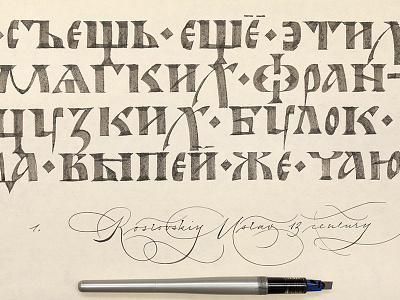 СЪЕШЬ·ЕЩЁ·ЭТИХ
МЯГКИХ·ФРАН-
ЦУЗКИХ·БУЛОК·
ДА·ВЫПЕЙ·ЖЕ·ЧАЮ
1. Rostovskiy Ustav 13 century